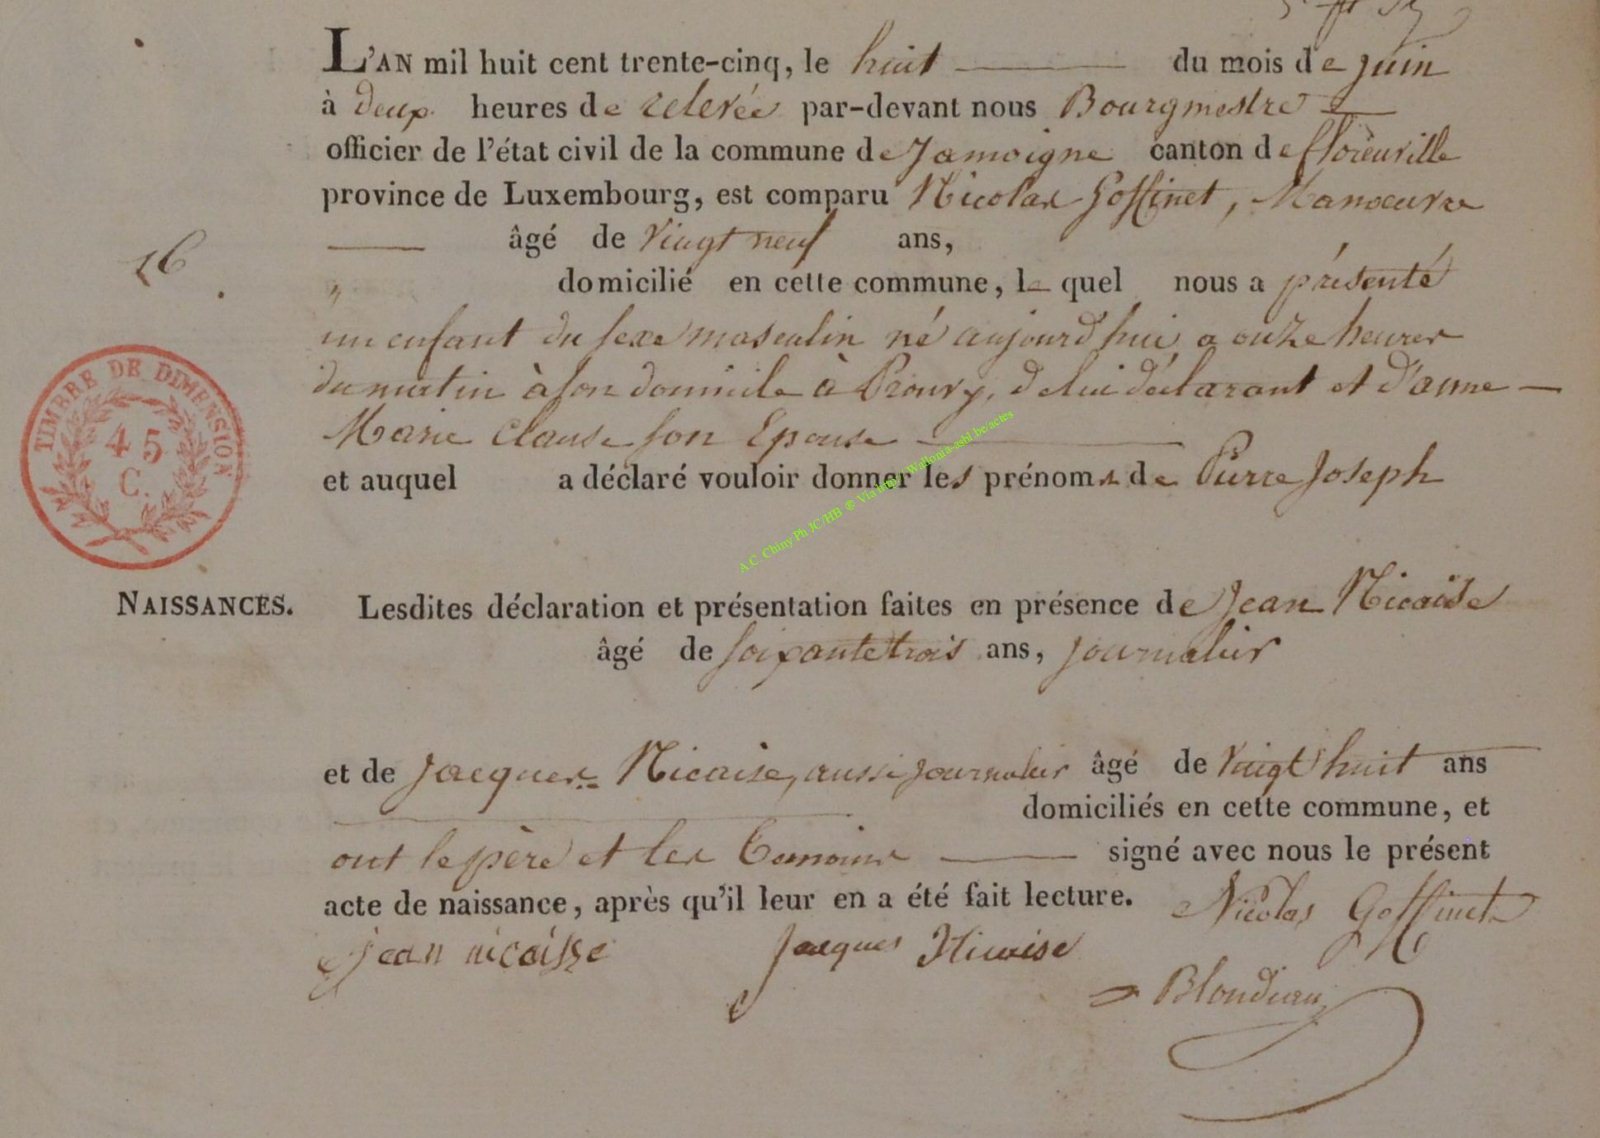 L'AN mil huit cent trente-cinq, le huit du mois de juin
à deux heures de relevée par-devant nous Bourgmestre
officier de l'état civil de la commune de Jamoigne canton de florenville
province de Luxembourg, est comparu Nicolas Goffinet, Manoeuvre
16
âgé de vingt neuf ans,
domicilié en cette commune, le quel nous a présenté
un enfant du sexe masculin né aujourd'hui a onze heures
du matin à son domicile à Prouvy, de lui déclarant et d'anne
Marie Clause son Epouse
TIMBRE DE DIMENSION
45
C.
et auquel a déclaré vouloir donner les prénoms de Pierre Joseph
A.C. Chiny Ph JC/HB ® Via http// Wallonia-asbl.be/actes
NAISSANCES.
Lesdites déclaration et présentation faites en présence de Jean Nicaise
âgé de soixante trois ans, journalier
et de Jacques Nicaise, aussi journalier âgé de vingt huit ans
domiciliés en cette commune, et
ont le père et les temoins signé avec nous le présent
acte de naissance, après qu'il leur en a été fait lecture. Nicolas Goffinet
jean nicaisse Jacques Nicaise
Blondiau